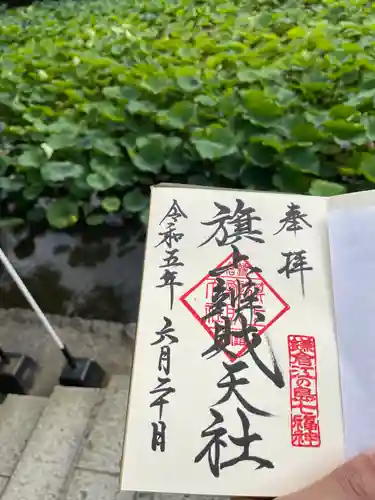 奉拝
旗上辨財天社
令和五年六月二十日
鎌倉江の島七福神